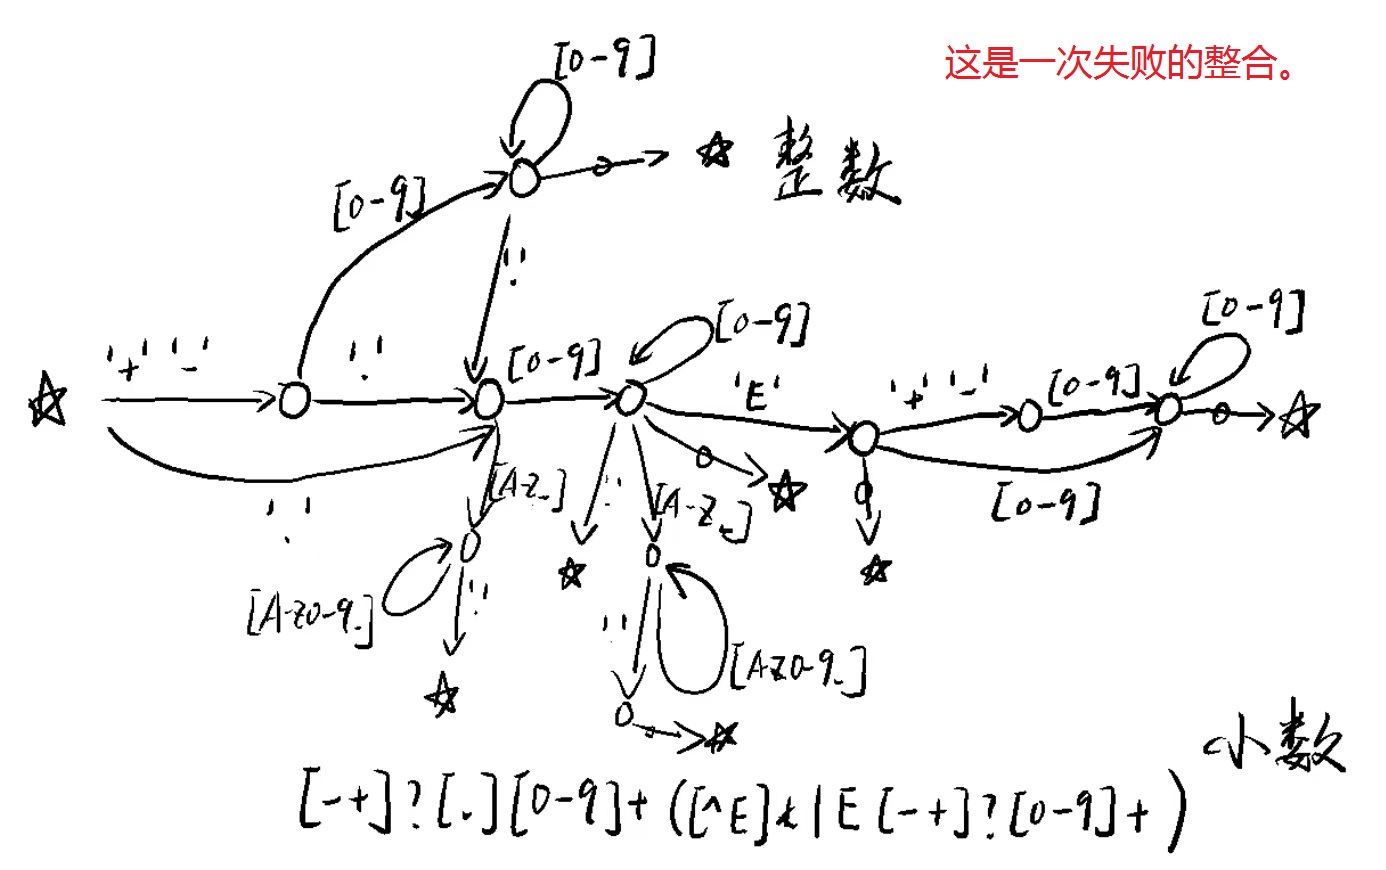 [0-9]
这是一次失败的整合。
整数
[0-9]
'.'
[0-9]
[0-9]
'+' '-'
'.'
[0-9]
'E'
'+' '-'
[0-9]
'.'
[A-Z_]
'.'
[A-Z_]
[0-9]
[A-Z0-9_]
'.'
'.'
[A-Z0-9_]
小数
[-+]?[.][0-9]+([^E]*|E[-+]?[0-9]+)